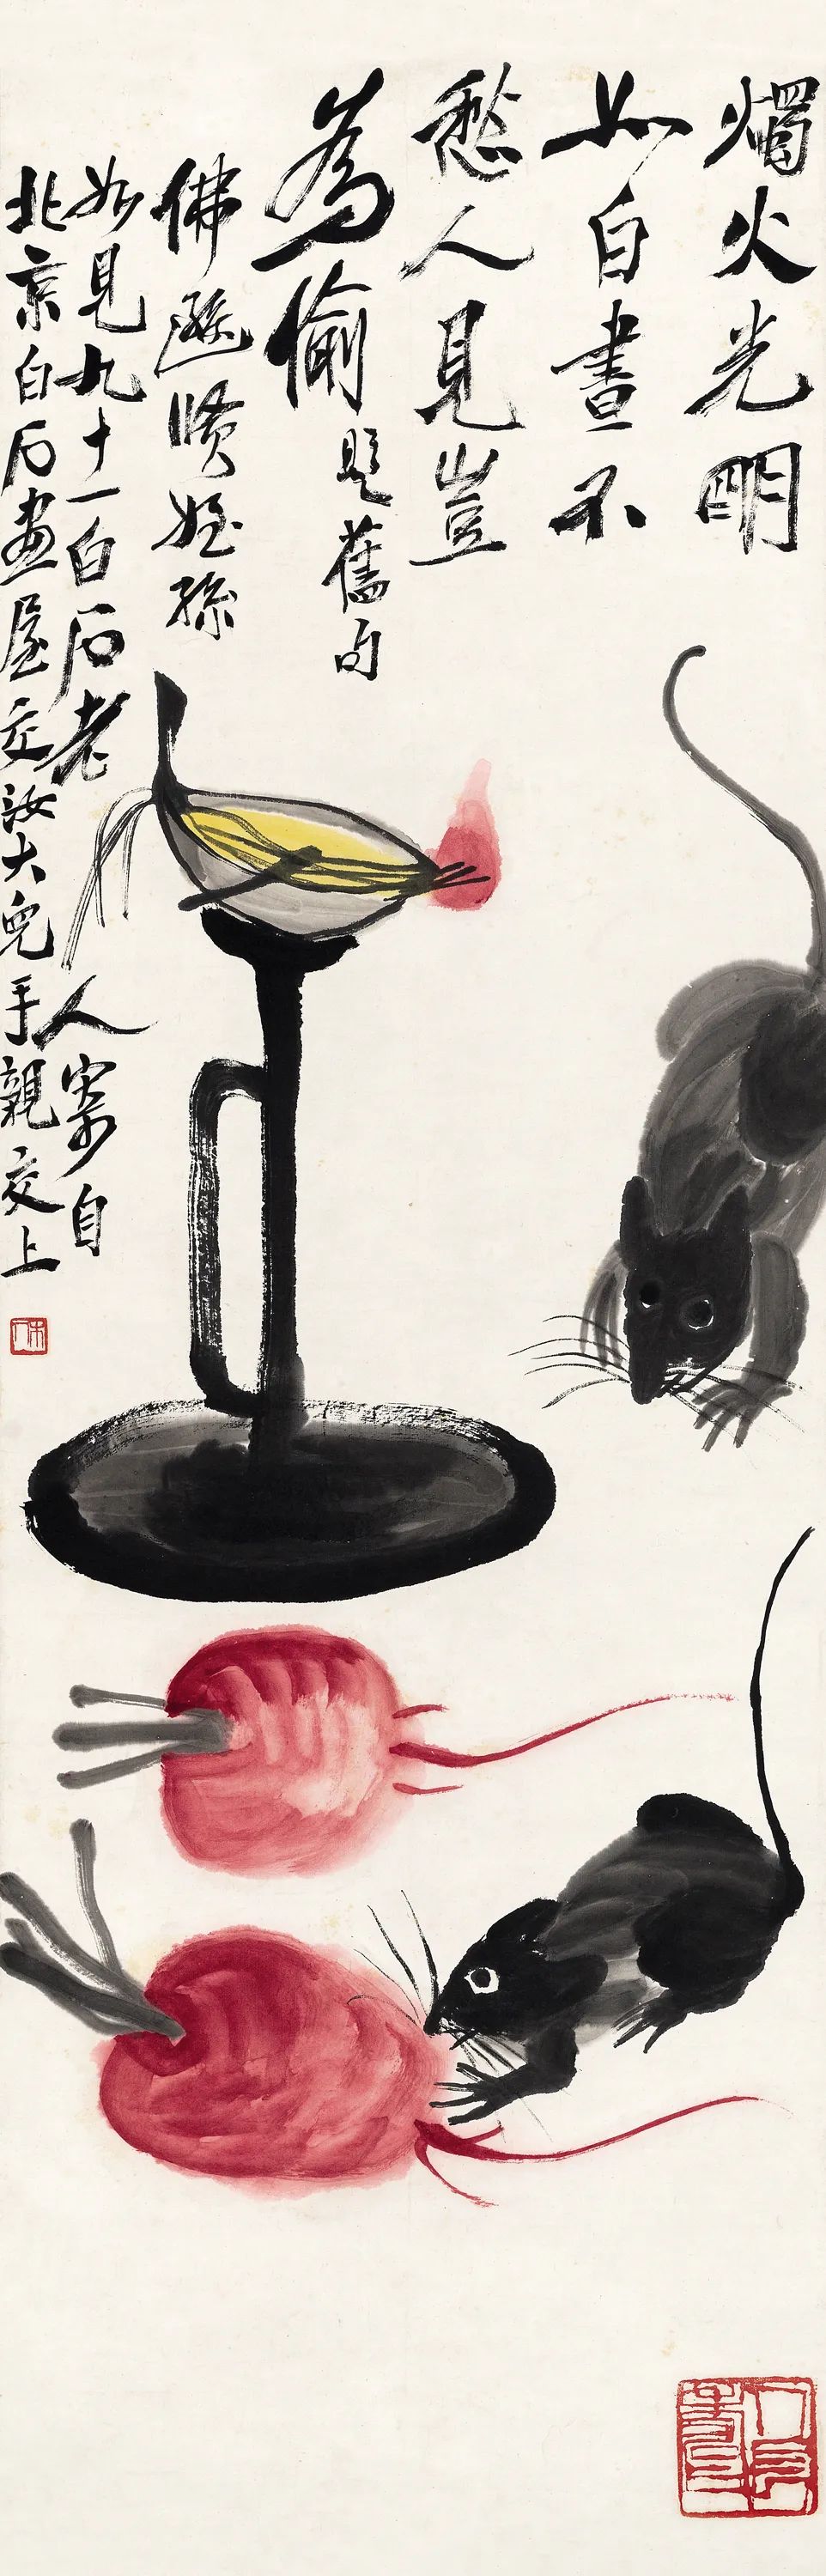 燭火光明
如白晝不
愁人見豈
為偷題舊句
佛賢姪孫
如見九十一白石老人寄自
北京白石畫屋交汝大兒手親交上
木人